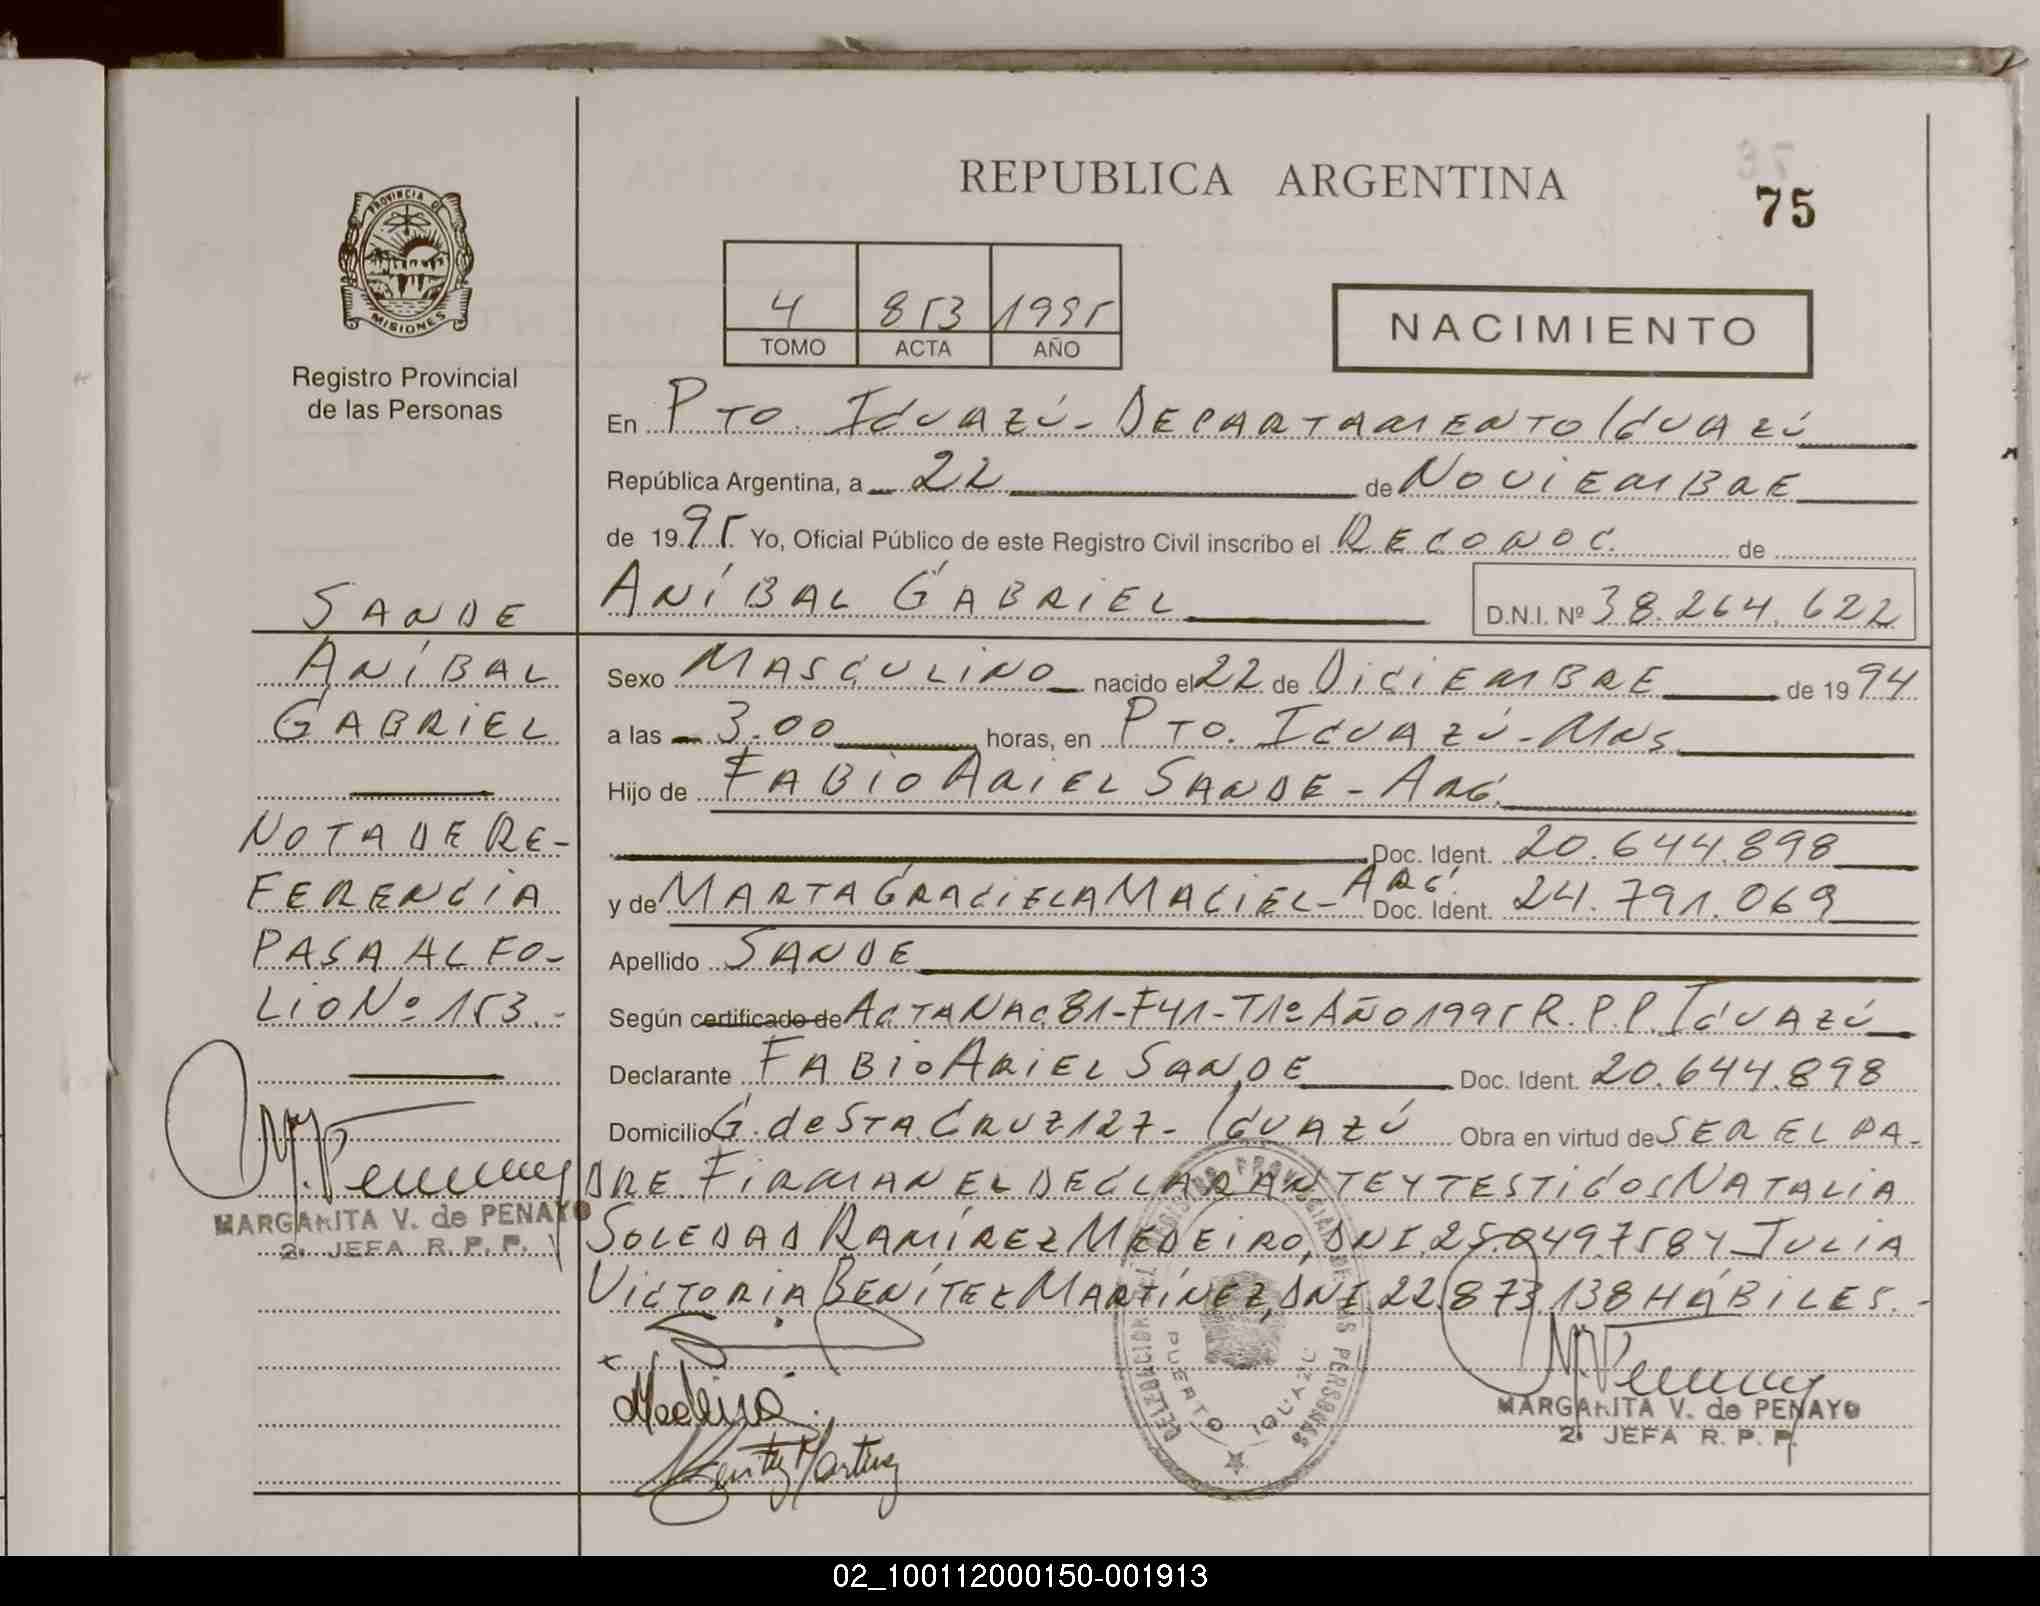 REPUBLICA ARGENTINA
75
PROVINCIA DE
MISIONES
Registro Provincial
de las Personas
4 853 1995
TOMO ACTA AÑO
NACIMIENTO
En PTO. IGUAZÚ - DEPARTAMENTO IGUAZÚ
República Argentina, a 22 de NOVIEMBRE
de 1995 Yo, Oficial Público de este Registro Civil inscribo el RECONOC. de
ANÍBAL GABRIEL D.N.I. Nº 38.264.622
Sexo MASCULINO nacido el 22 de DICIEMBRE de 1994
a las 3.00 horas, en PTO. IGUAZÚ - MNS
Hijo de FABIO ARIEL SANDE - ARG.
Doc. Ident. 20.644.898
y de MARTA GRACIELA MACIEL - ARG. Doc. Ident. 24.791.069
Apellido SANDE
Según certificado de ACTA NAC 81-F41-T1º AÑO 1995 R.P.P. IGUAZÚ
Declarante FABIO ARIEL SANDE Doc. Ident. 20.644.898
Domicilio G. de STA. CRUZ 127 - IGUAZÚ Obra en virtud de SER EL PA-
DRE. FIRMAN EL DECLARANTE Y TESTIGOS NATALIA
SOLEDAD RAMÍREZ MEDEIRO, DNI. 25.049.758 Y JULIA
VICTORIA BENÍTEZ MARTÍNEZ, DNI. 22.873.138 HÁBILES.-
SANDE
ANÍBAL
GABRIEL
NOTA DE RE-
FERENCIA
PASA AL FO-
LIO Nº 153.-
MARGARITA V. de PENAYO
2. JEFA R. P. P.
PUERTO IGUAZU
Benitez Martinez
MARGARITA V. de PENAYO
2. JEFA R. P. P.
02_100112000150-001913